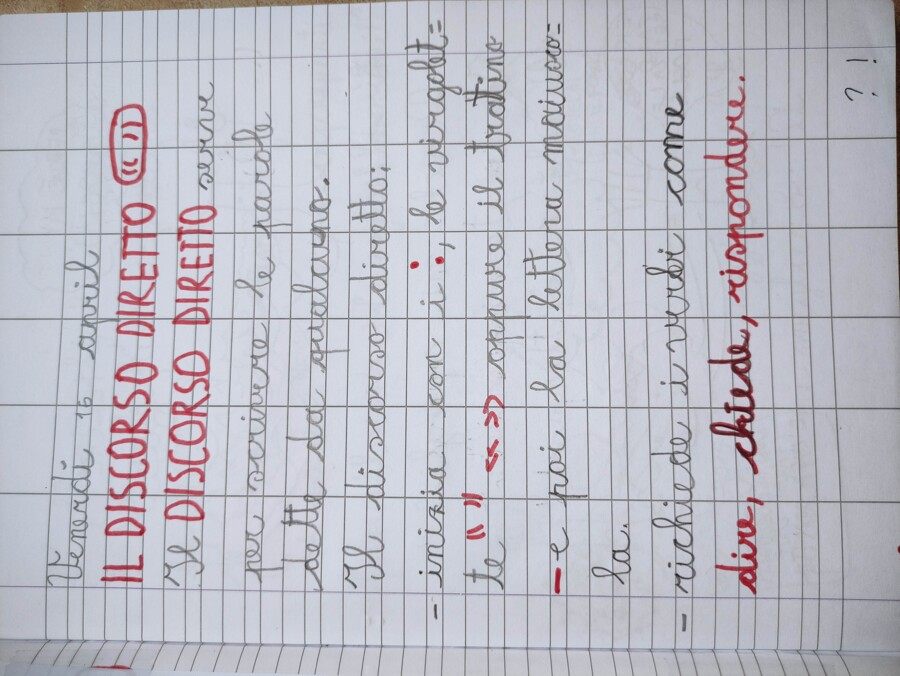 Venerdì 16 april
IL DISCORSO DIRETTO (“ ”)
Il DISCORSO DIRETTO serve
per scrivere le parole
dette da qualcuno.
Il discorso diretto:
- inizia con i :, le virgolet=
te “ ” « » oppure il trattino
- e poi la lettera maiusco=
la.
- richiede i verbi come
dire, chiede, rispondere.
? !